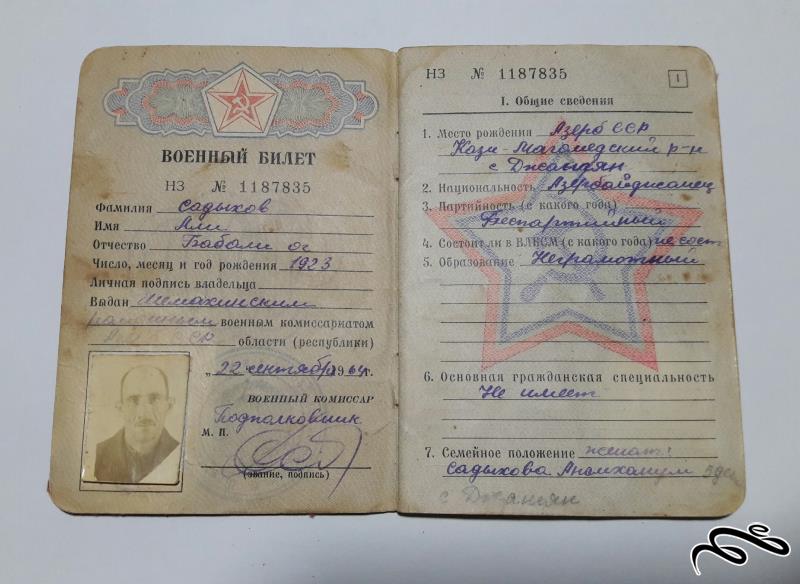 ВОЕННЫЙ БИЛЕТ
НЗ № 1187835
Фамилия Садыхов
Имя Али
Отчество Бабали ог
Число, месяц и год рождения 1923
Личная подпись владельца
Выдан Шемахинским
районным военным комиссариатом
области (республики)
„22 сентябр 1964г.
ВОЕННЫЙ КОМИССАР
Подполковник
М. П.
(звание, подпись)
НЗ № 1187835
1
I. Общие сведения
1. Место рождения Азерб ССР
Кази-Магомедский р-н
с
2. Национальность Азербайджанец
3. Партийность (с какого года)
Беспартийный
4. Состоял ли в ВЛКСМ (с какого года) не сост
5. Образование Неграмотный
6. Основная гражданская специальность
Не имеет
7. Семейное положение женат:
Садыхова
с